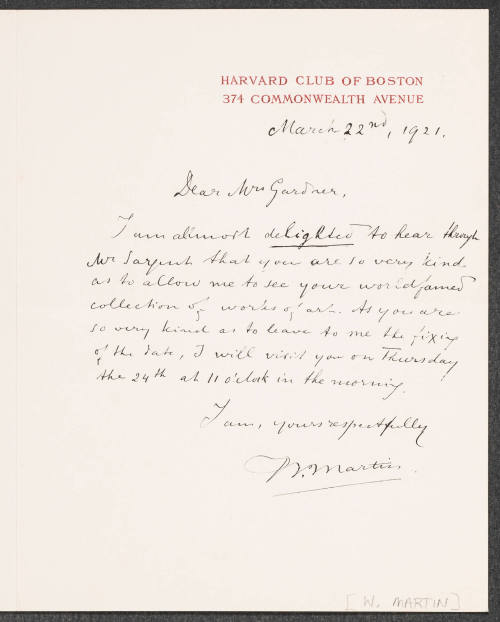 HARVARD CLUB OF BOSTON
374 COMMONWEALTH AVENUE
March 22nd, 1921.
Dear Mrs Gardner,
I am almost delighted to hear through
Mr Sargent that you are so very kind
as to allow me to see your worldfamed
collection of works of art. As you are
so very kind as to leave to me the fixing
of the date, I will visit you on Thursday
the 24th at 11 o'clock in the morning.
I am, yours respectfully
W. Martin.
[W. MARTIN]